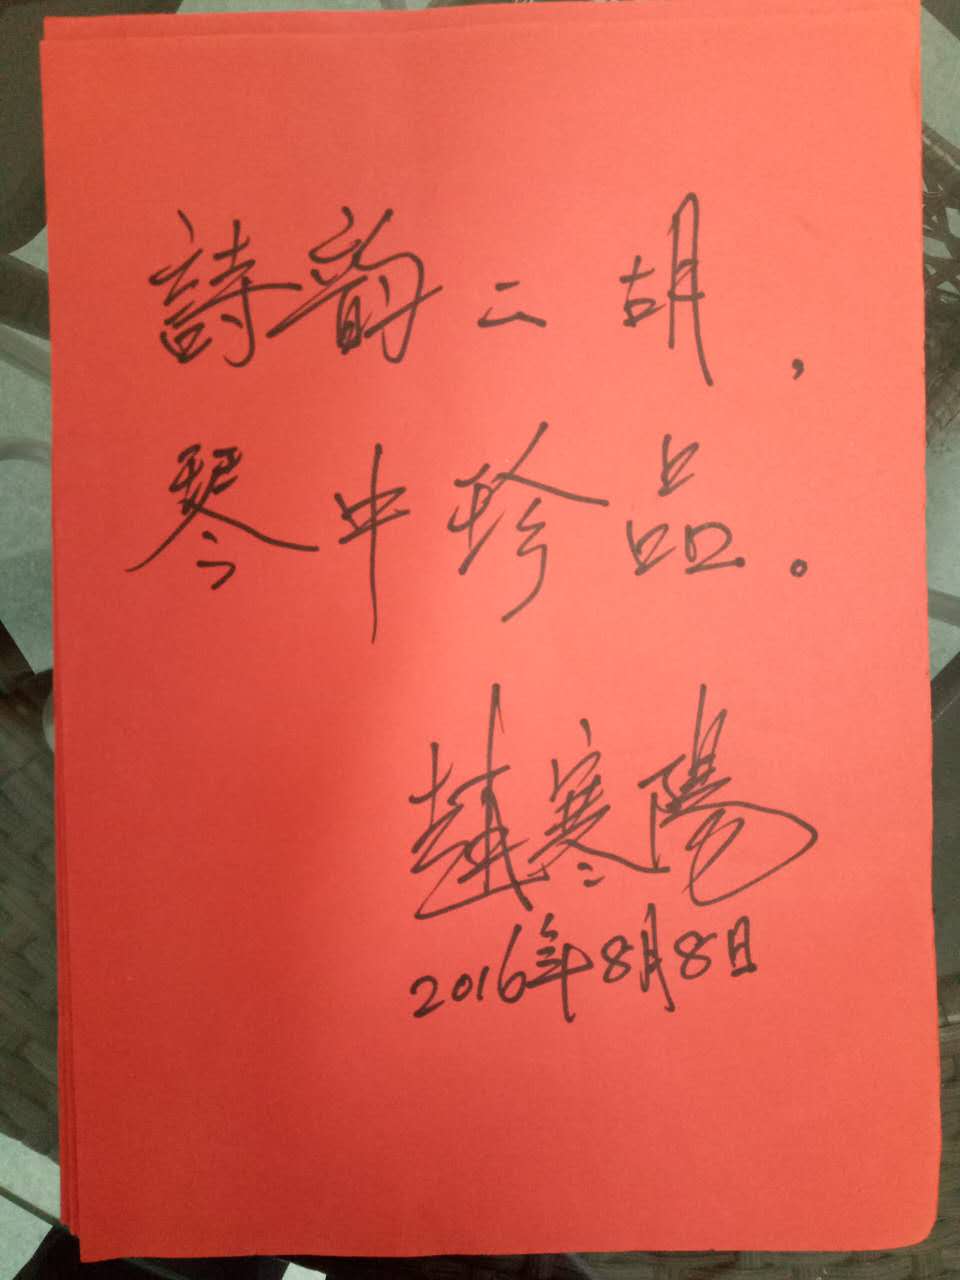 詩韵二胡，
琴中珍品。
趙寒陽
2016年8月8日